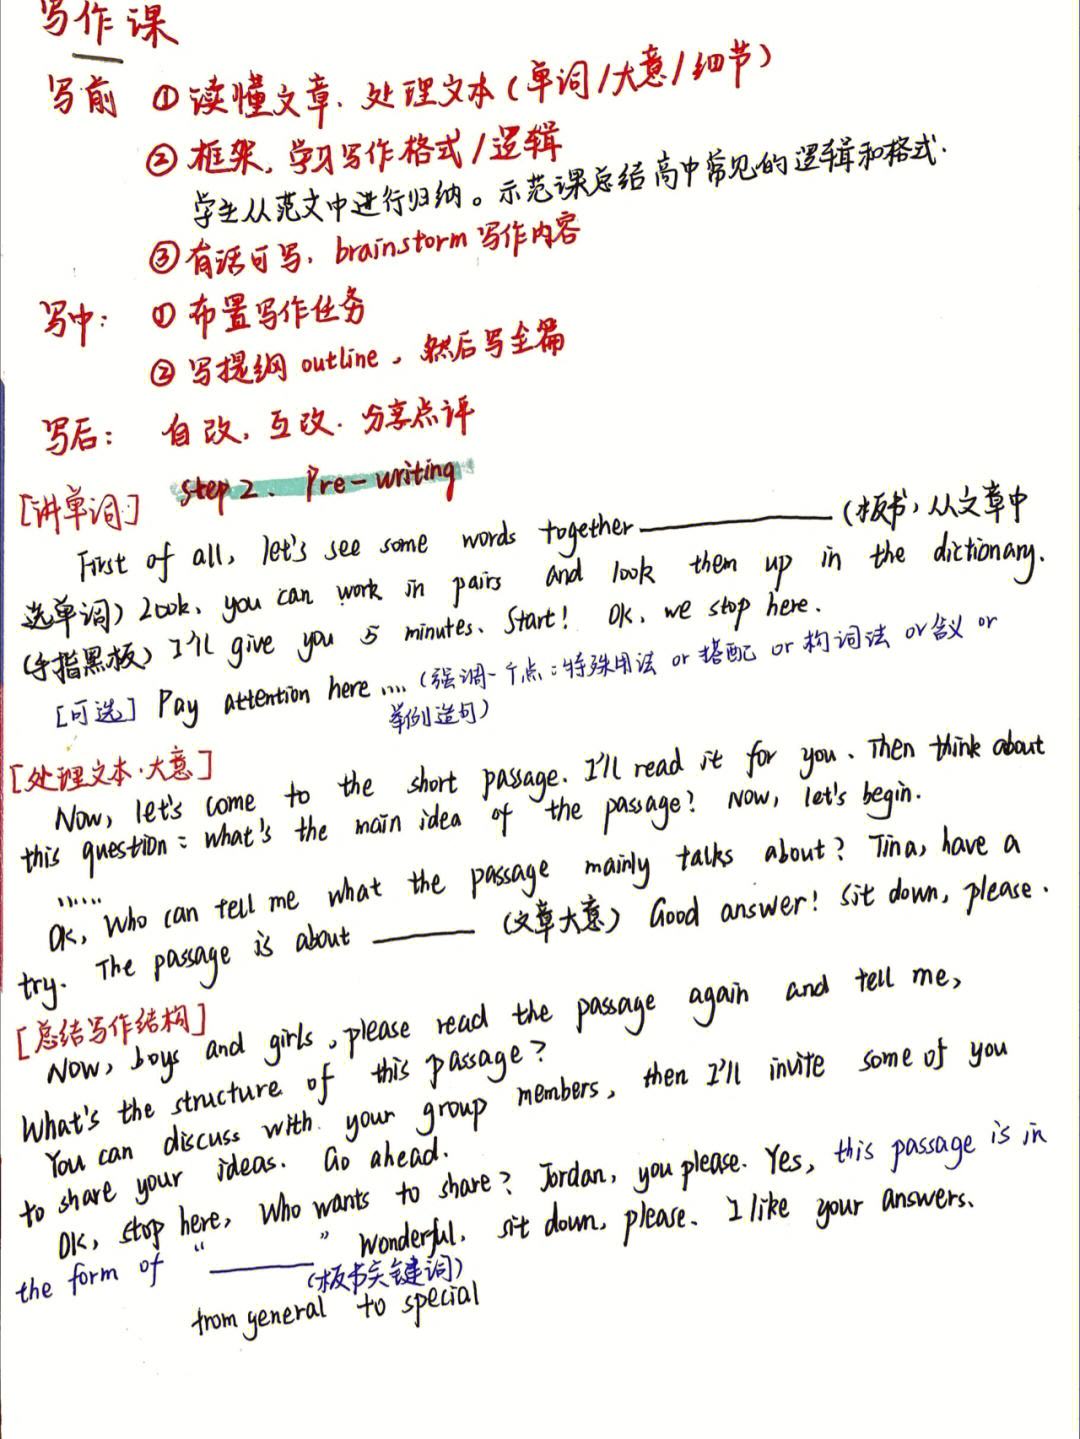 写作课
写前 ①读懂文章、处理文本(单词/大意/细节)
②框架,学习写作格式/逻辑
学生从范文中进行归纳。示范课总结高中常见的逻辑和格式.
③有话可写, brainstorm 写作内容
写中: ①布置写作任务
②写提纲 outline, 然后写全篇
写后: 自改, 互改. 分享点评
Step 2、 Pre-writing
[讲单词]
First of all, let's see some words together————(板书,从文章中
选单词) Look, you can work in pairs and look them up in the dictionary.
(手指黑板) I'll give you 5 minutes、Start! OK, we stop here.
[可选] Pay attention here .... (强调一个点:特殊用法 or 搭配 or 构词法 or 含义 or
举例造句)
[处理文本·大意]
Now, let's come to the short passage. I'll read it for you、Then think about
this question: what's the main idea of the passage? Now, let's begin.
......
OK, Who can tell me what the passage mainly talks about? Tina, have a
try. The passage is about ——— (文章大意) Good answer! Sit down, please.
[总结写作结构]
Now, boys and girls, please read the passage again and tell me,
What's the structure of this passage?
You can discuss with your group members, then I'll invite some of you
to share your ideas. Go ahead.
OK, stop here, Who wants to share? Jordan, you please. Yes, this passage is in
the form of "———" Wonderful, sit down, please. I like your answers.
(板书关键词)
from general to special